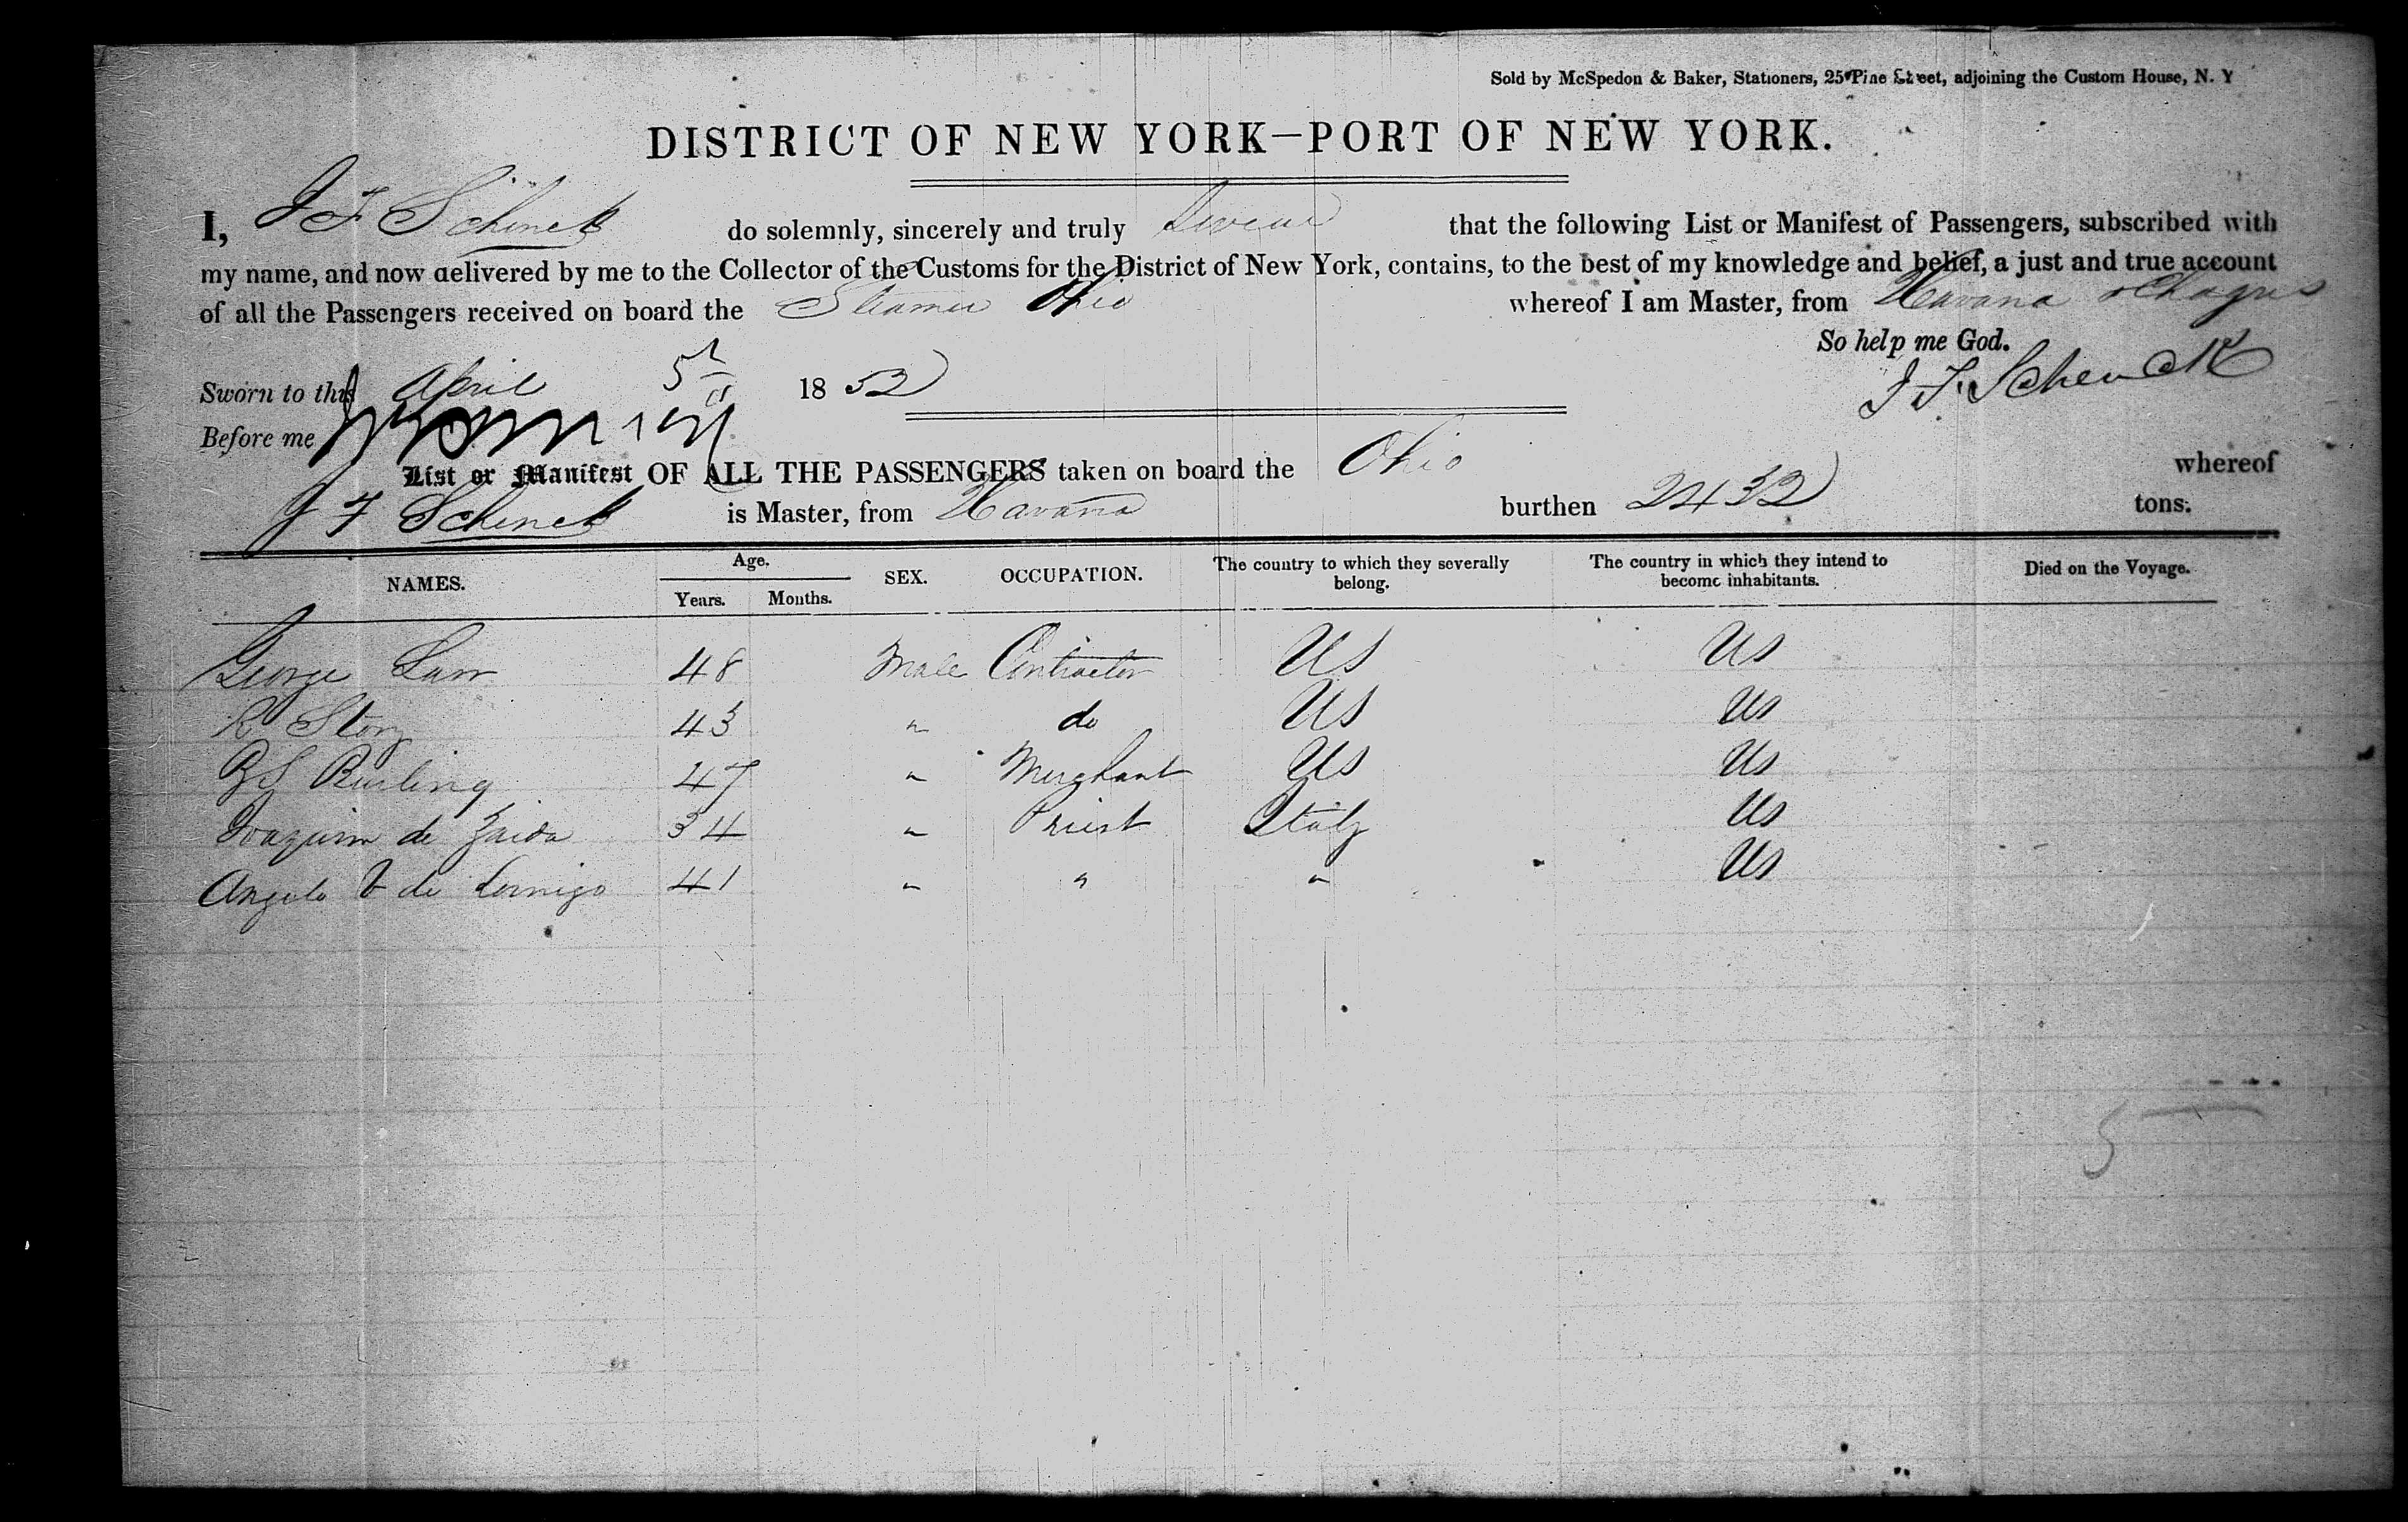 Sold by McSpedon & Baker, Stationers, 25 Pine Street, adjoining the Custom House, N. Y
DISTRICT OF NEW YORK—PORT OF NEW YORK.
I, J F Schenck do solemnly, sincerely and truly Swear that the following List or Manifest of Passengers, subscribed with
my name, and now delivered by me to the Collector of the Customs for the District of New York, contains, to the best of my knowledge and belief, a just and true account
of all the Passengers received on board the Steamer Ohio whereof I am Master, from Havana & Chagres
So help me God.
Sworn to this April 5th 1852 J F. Schenck
Before me
List or Manifest OF ALL THE PASSENGERS taken on board the Ohio whereof
J F Schenck is Master, from Havana burthen 2432 tons.
NAMES. Age. Years. Months. SEX. OCCUPATION. The country to which they severally belong. The country in which they intend to become inhabitants. Died on the Voyage.
George Law 48 Male Contractor US US
R Story 43 " do US US
B S Burling 47 " Merchant US US
Joaquim de Zaida 34 " Priest Italy US
Angelo V de 41 " " " US
5